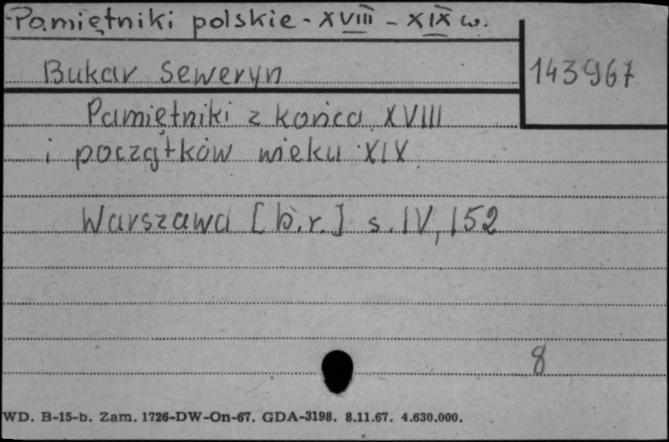 Pamiętniki polskie - XVIII - XIX w.
Bukar Seweryn
143967
Pamiętniki z końca XVIII
i początków wieku XIX
Warszawa [b.r.] s. IV, 152
8
WD. B-15-b. Zam. 1726-DW-On-67. GDA-3198. 8.11.67. 4.630.000.